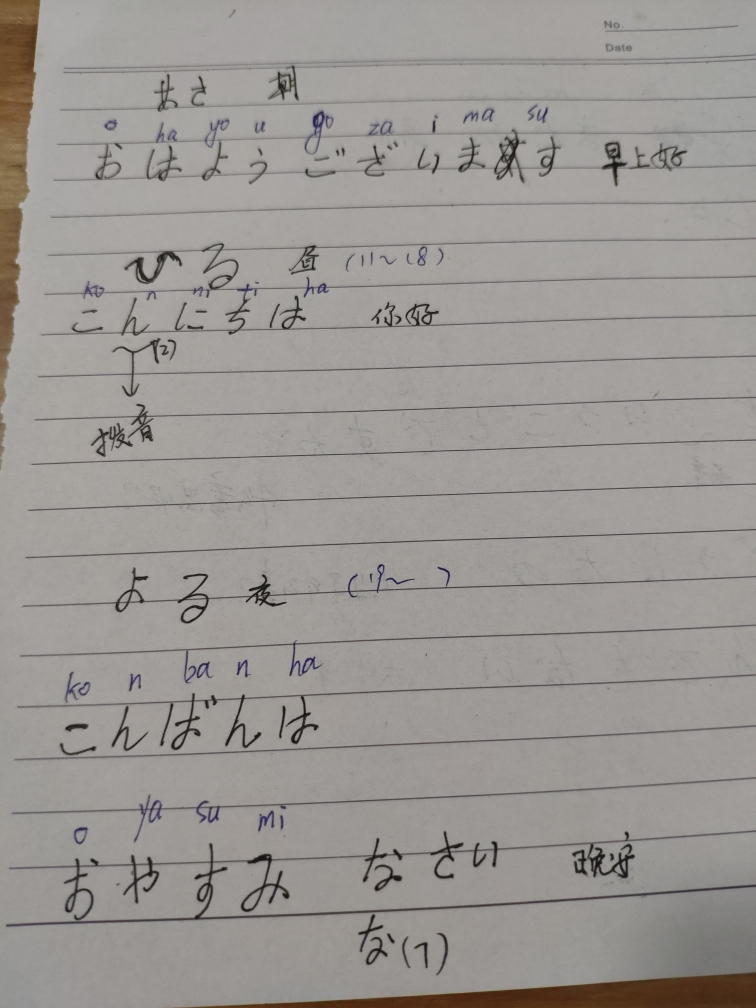 No.
Date
あさ 朝
o ha yo u go za i ma su
おはようございます 早上好
ひる 昼 (11~18)
ko n ni ti ha
こんにちは 你好
(2)
拨音
よる 夜 (19~ )
ko n ba n ha
こんばんは
o ya su mi
おやすみ なさい 晚安
な(1)